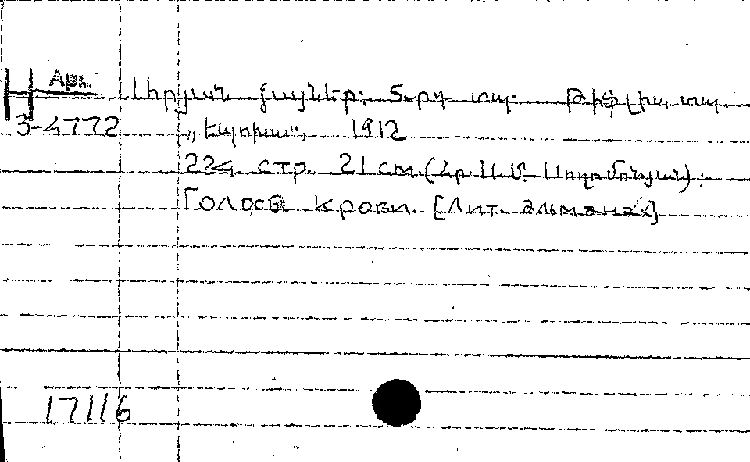 Арм.
H Արյան ձայներ: 5-րդ տպ. Թիֆլիս, տպ.
3-4772 „Էպոխա“, 1912
224 стр. 21 см (Հր. Ա. Մ. Սողոմոնյան).
Голоса крови. [Лит. альманах]
17116